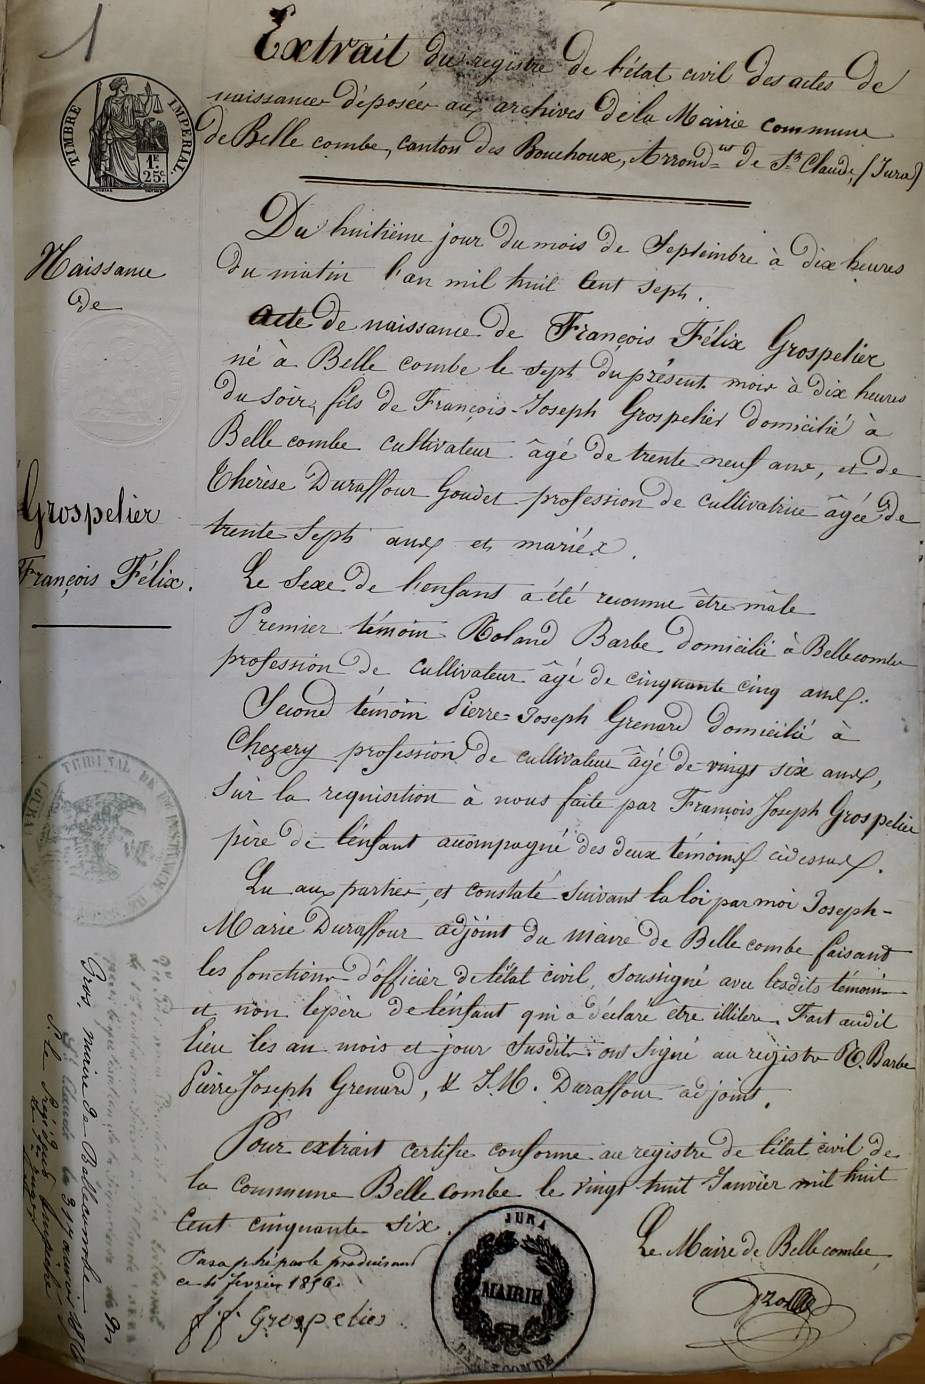 1
Extrait du registre de l'état civil des actes de
naissances déposées aux archives de la Mairie commune
de Belle combe, canton des Bouchoux, Arrond.nt de St. Claude, (Jura)
TIMBRE IMPERIAL
1F.
25c.
Naissance
de
Grospelier
François Félix.
Du huitième jour du mois de Septembre à dix heures
du matin l'an mil huit cent sept.
Acte de naissance de François Félix Grospelier
né à Belle combe le sept du présent mois à dix heures
du soir, fils de François-Joseph Grospelier domicilié à
Belle combe cultivateur âgé de trente neuf ans, et de
Thérèse Duraffour Goudet profession de cultivatrice âgée de
trente sept ans et mariés.
Le Sexe de l'enfant a été reconnu être mâle
Premier témoin Roland Barbe domicilié à Bellecombe
profession de cultivateur âgé de cinquante cinq ans.
Second témoin Pierre-Joseph Grenard domicilié à
Chezery profession de cultivateur âgé de vingt six ans,
Sur la requisition à nous faite par François Joseph Grospelier
père de l'enfant accompagné des deux témoins cidessus.
Lu aux parties, et constaté suivant la loi par moi Joseph-
Marie Duraffour adjoint du maire de Belle combe faisant
les fonctions d'officier de l'état civil, soussigné avec lesdits témoins
et non le père de l'enfant qui a déclaré être illitere. Fait audit
lieu les an mois et jour susdits ont signé au registre R. Barbe
Pierre Joseph Grenard, & J.M. Duraffour adjoint.
Pour extrait certifié conforme au registre de l'état civil de
la commune Belle combe le vingt huit Janvier mil huit
cent cinquante six.
Le Maire de Bellecombe
Paraphé par le produisant
ce 4 février 1856.
f. f. Grospelier
JURA
MAIRIE
BELLECOMBE
TRIBUNAL DE 1re INSTANCE
Gros, maire de Bellecombe
St Claude le